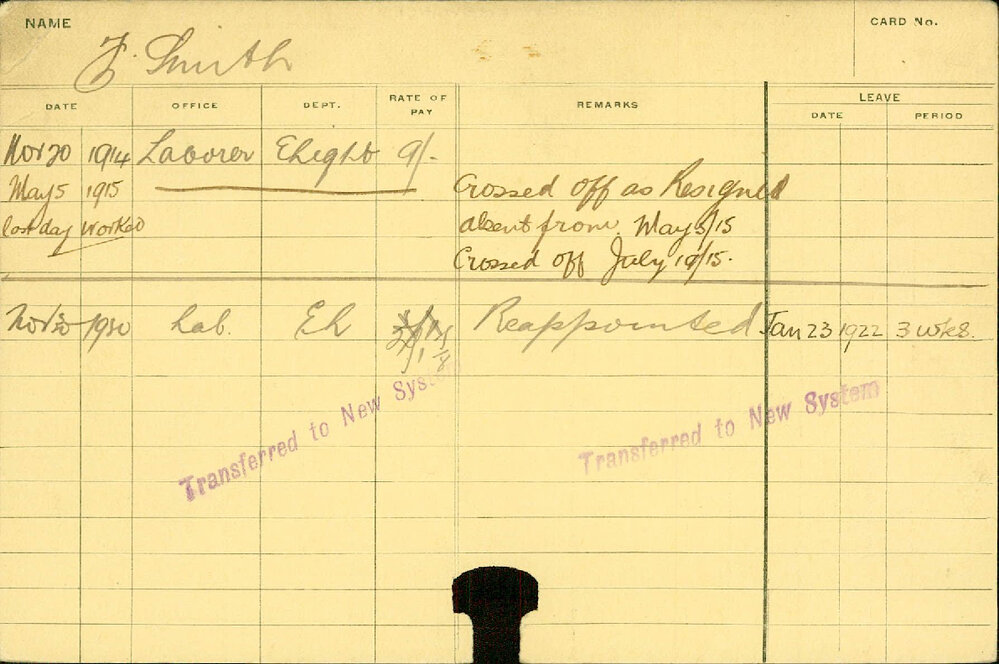 NAME
CARD No.
F. Smith
DATE OFFICE DEPT. RATE OF PAY REMARKS LEAVE
DATE PERIOD
Nov 20 1914 Laborer Elight 9/-
May 5 1915 Crossed off as Resigned
last day worked absent from May 5/15
Crossed off July 19/15.
1920 Lab. El Reappointed Jan 23 1922 3 wks.
Transferred to New System
Transferred to New System